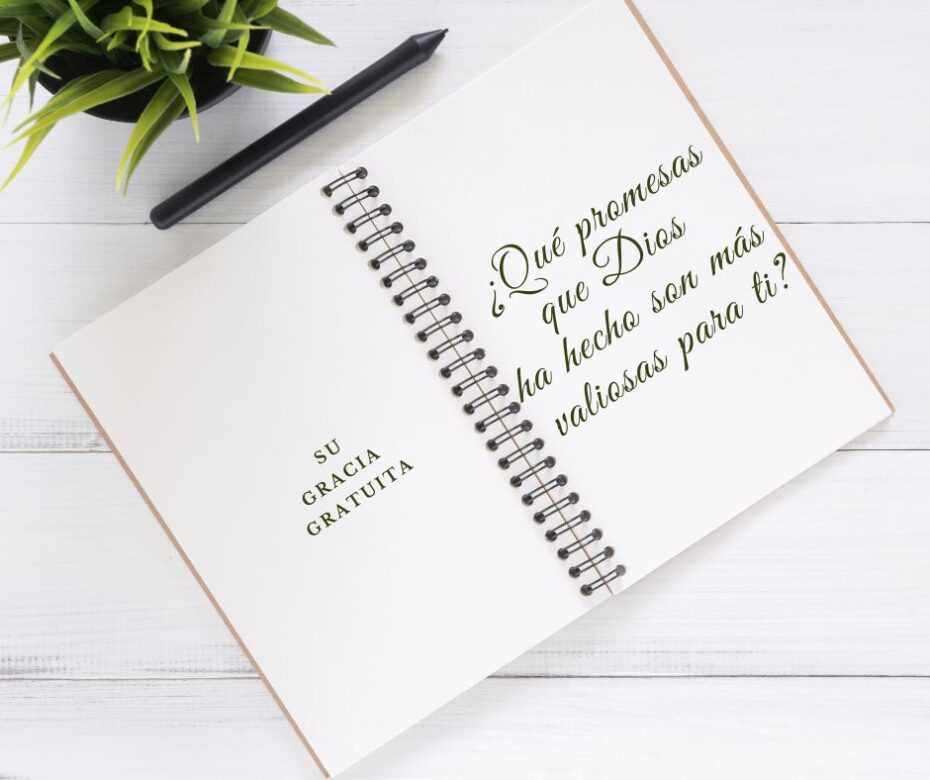 SU
GRACIA
GRATUITA
¿Qué promesas
que Dios
ha hecho son más
valiosas para ti?